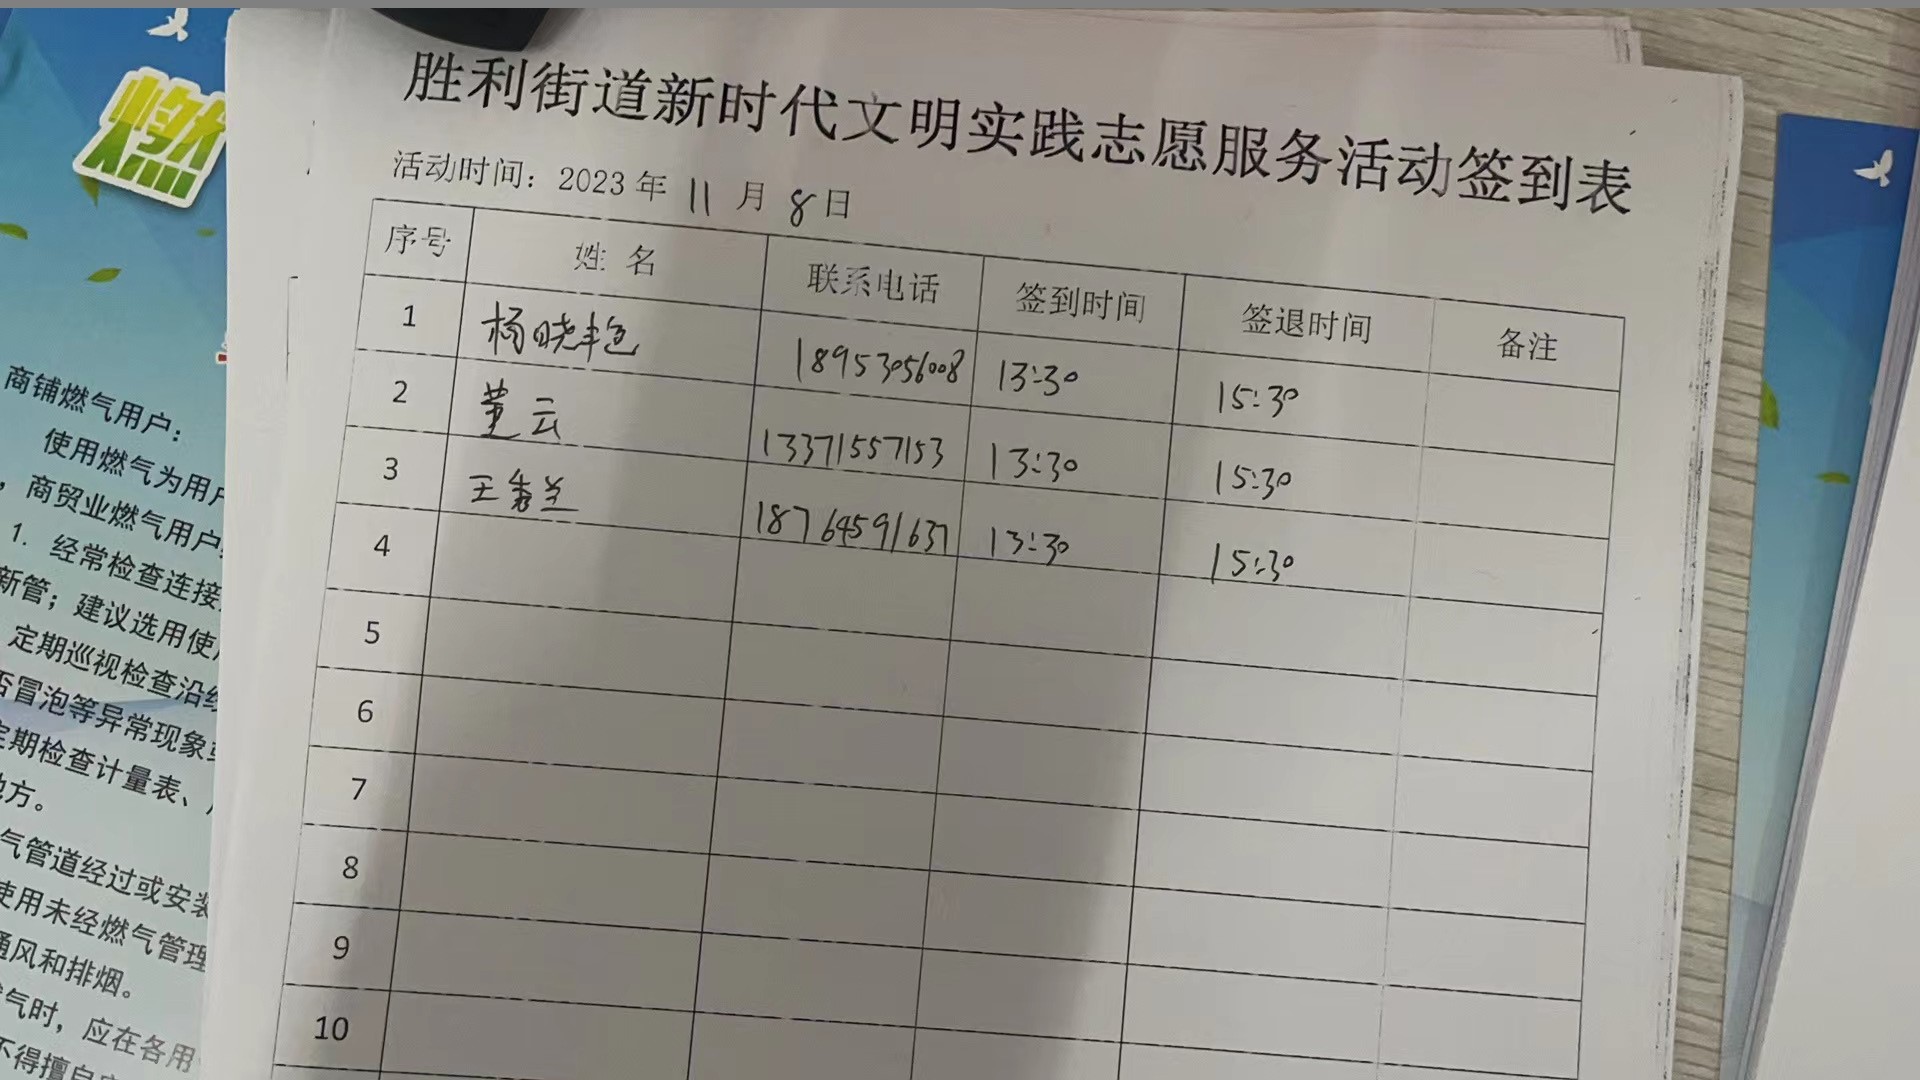 燃
商铺燃气用户：
使用燃气为用户
，商贸业燃气用户
1. 经常检查连接
新管；建议选用使
定期巡视检查沿线
否冒泡等异常现象或
定期检查计量表、
地方。
气管道经过或安装
使用未经燃气管理
通风和排烟。
气时，应在各用
不得擅自
胜利街道新时代文明实践志愿服务活动签到表
活动时间：2023年 11 月 8 日
序号 姓 名 联系电话 签到时间 签退时间 备注
1 杨晓艳 18953056008 13:30 15:30
2 董云 13371557153 13:30 15:30
3 王秀兰 18764591637 13:30 15:30
4
5
6
7
8
9
10